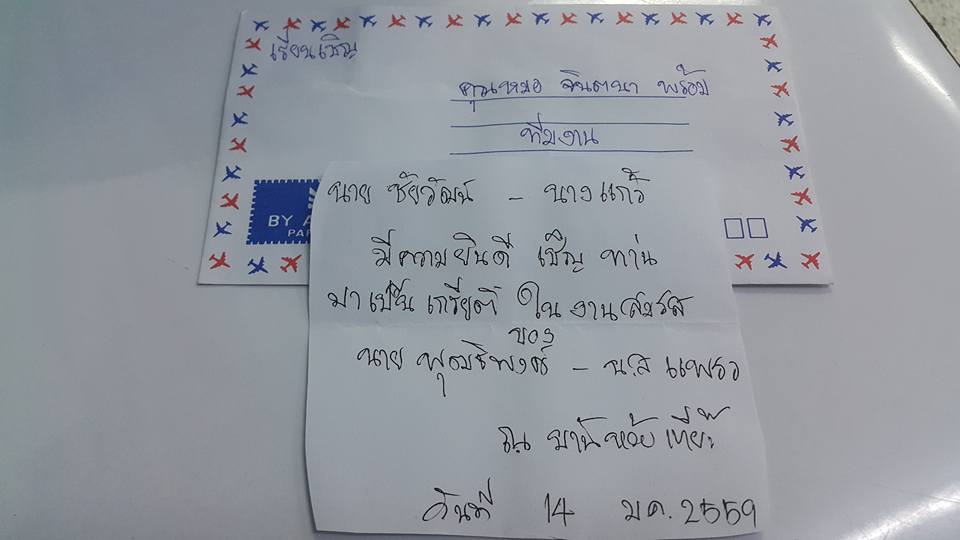 เรียนเชิญ
คุณหมอ จินตนา พร้อม
ทีมงาน
BY A
PAR
นาย ชัยวัฒน์ - นางแก้ว
มีความยินดี เชิญ ท่าน
มาเป็น เกรียติ ในงานสมรส
ของ
นาย พุฒธิพงษ์ - น.ส แพรว
ณ บ้านห้วย
วันที่ 14 มค. 2559